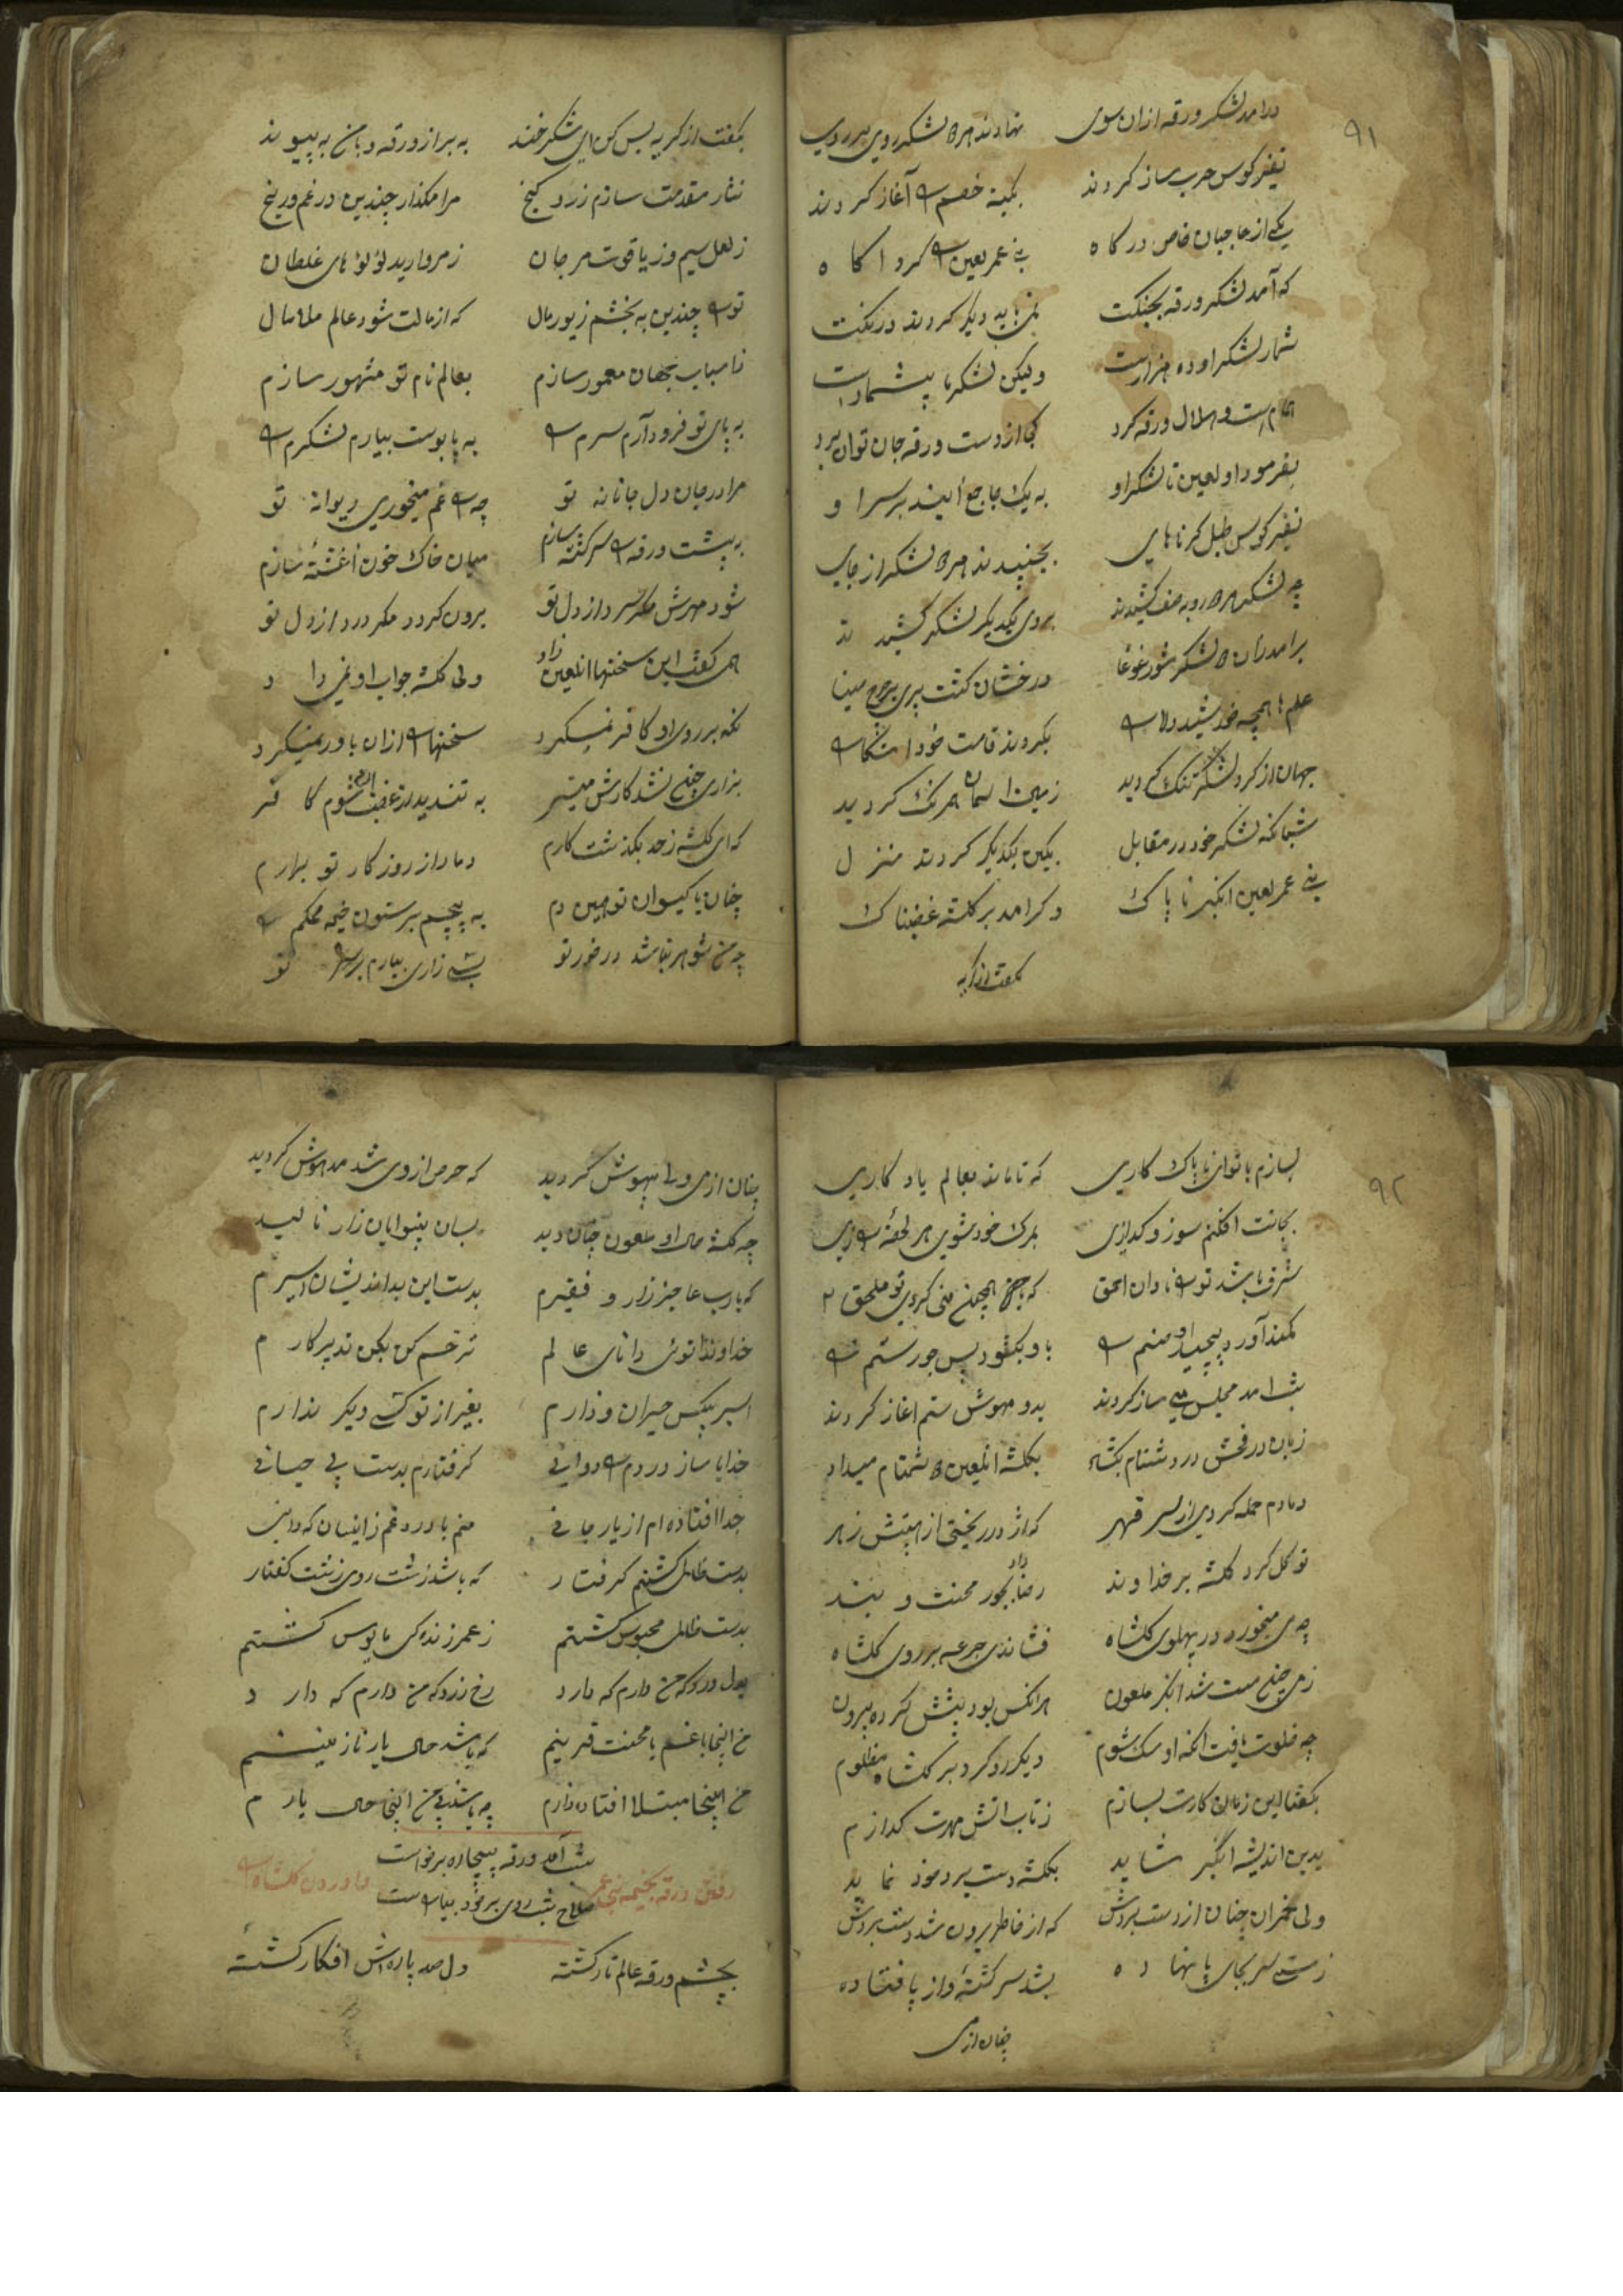 ۹۱
درامد لشکر ورقه ازان سوی نهادند هر لشکر روی بر روی
نفیر کوس حرب ساز کردند بکینه خصم را آغاز کردند
یکی از حاجبان خاص درکاه بنی عمر لعین را کرد اکاه
که آمد لشکر ورقه بجنکت نمی باید دیکر کردند درنکت
شمار لشکر او ده هزارست ولیکن لشکر ما بیشمارست
ورقه کرد کجا از دست ورقه جان توان برد
بفرمود او لعین تا لشکر او به یک جا جمع ایند بر سر او
نفیر کوس طبل کرناهای بجنبیدند هر لشکر از جای
چه لشکر رو به صف کشیدند بروی یکدیکر لشکر کشیدند
برامد زان لشکر شور غوغا درخشان کشت بر چرخ مینا
علم ها همچه خورشید بکردند قامت خود اشکارا
جهان از کرد لشکر تنک کردید زمین اسمان همرنک کردید
شبانکه لشکر خود در مقابل بکین یکدیکر کردند منزل
بنی عمر لعین انکبر ناپاک دکر امد بر کلشه غضبناک
بکفت از کریه
بکفت از کریه بس کن ای شکرخند به بر از ورقه و با من به پیوند
نثار مقدمت سازم زر و کنج مرا مکذار چندین در غم و رنج
ز لعل سیم وز یاقوت مرجان ز مروارید لؤلؤهای غلطان
تورا چندین به بخشم زیور مال که از مالت شود عالم مالامال
بجهان معمور سازم بعالم نام تو مشهور سازم
به پای تو فرود آرم سرم را به پابوست بیارم لشکرم را
مرا در جان دل جانانه تو چه را غم میخوری دیوانه تو
به پیشت ورقه را سرکشته سازم میان خاک خون اغشته سازم
شود مهرش مکر سرد از دل تو برون کردد مکر درد از دل تو
همی کفت این سخنها انلعین زاد ولی کلشه جواب او نمی داد
نکه بر روی او کافر نمیکرد سخنهارا ازان باور نمیکرد
بزاری چون نشد کارش میسر به تندید از غضب ان شوم کافر
که ای کلشه زحد بکذشت کارم دمار از روزکار تو برارم
چنان با کیسوان تو همین دم به پیچم بر ستون خیمه محکم
چه من شوهر نباشد درخور تو بسی زاری بیارم بر سر تو
۹۲
بسازم با تو ای ناپاک کاری که تا ماند بعالم یادکاری
بجانت افکنم سوز و کدازی بمرک خود شوی هر لحظه راضی
شرف باشد تورا نادان احمق که با همچون منی کردی تو ملحق
کمند آورد پیچید او صنم را با و بکشود پس جور ستم را
شب امد مجلس می ساز کردند بدو مهوش ستم اغاز کردند
زبان در فحش در دشنام بکشاد بکلشه انلعین دشنام میداد
دمادم حمله کردی از سر قهر که اژدر ریختی از هیبتش زهر
توکل کرد کلشه بر خداوند رضا داد بجور محنت و بند
چه می میخورد در پهلوی کلشاه فشاندی جرعه بر روی کلشاه
ز می چون مست شد انکبر ملعون هر انکس بود پیشش کرده بیرون
چه خلوت یافت انکه او سک شوم دیکر رو کرد بر کلشاه مظلوم
بکفتا این زمان کارت بسازم ز تاب اتش مهرت کدازم
بدین اندیشه انکبر شاید بکلشه دست برد خود نماید
ولی خمران چنان از دست بردش که از خاطر برون شد دست بردش
ز مستی سر بجای پا نهاده بشد سرکشته واز پا فتاده
چنان از می
چنان از می ولی بیهوش کردید که حرص از وی شد مدهوش کردید
چه کلشه حال او ملعون چنان دید بسان بینوایان زار نالید
که یارب عاجز زار و فقیرم بدست این بداندیشان اسیرم
خداوندا توئی دانای عالم ترحم کن بکن تدبیر کارم
اسیر بیکس حیران و زارم بغیر از تو کسی دیکر ندارم
خدایا ساز دردم را دوایی کرفتارم بدست بی حیائی
جدا افتاده ام از یار جانی منم با درد و غم زاینسان که دانی
بدست ظالمی کشتم کرفتار که باشد زشت روی زشت کفتار
بدست ظالمی محبوس کشتم ز عمر زندکی مایوس کشتم
بدل دردی که من دارم که دارد رخ زردی که من دارم که دارد
من اینجا با غم با محنت قرینم که باشد حال یار نازنینم
من اینجا مبتلا افتاده زارم چه باشد بی من اینجا حال یارم
رفتن ورقه بخیمه بنی عمر واوردن کلشاه را
شب آمد ورقه بیچاره برخواست سلاح شب روی بر خود بیاراست
بچشم ورقه عالم تار کشته دل صد پاره اش افکار کشته